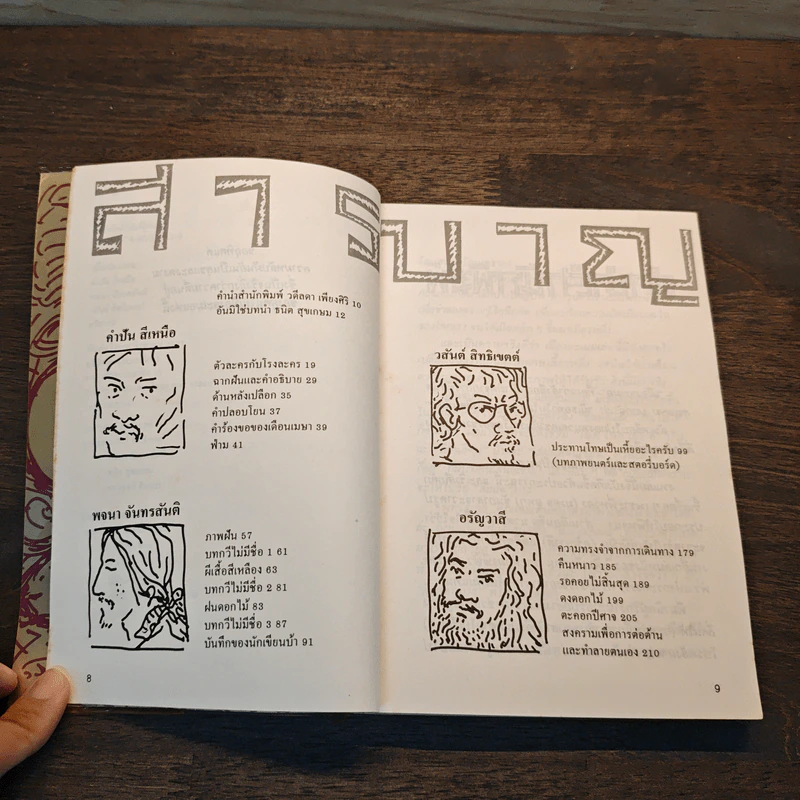 สารบาญ
คำนำสำนักพิมพ์ วดีลดา เพียงศิริ 10
อันมิใช่บทนำ ธนิต สุขเกษม 12
คำปัน สีเหนือ
ตัวละครกับโรงละคร 19
ฉากฝันและคำอธิบาย 29
ด้านหลังเปลือก 35
คำปลอบโยน 37
คำร้องขอของเดือนเมษา 39
ฟาม 41
พจนา จันทรสันติ
ภาพฝัน 57
บทกวีไม่มีชื่อ 1 61
ผีเสื้อสีเหลือง 63
บทกวีไม่มีชื่อ 2 81
ฝนดอกไม้ 83
บทกวีไม่มีชื่อ 3 87
บันทึกของนักเขียนบ้า 91
8
วสันต์ สิทธิเขตต์
ประทานโทษเป็นเหี้ยอะไรครับ 99
(บทภาพยนตร์และสตอรี่บอร์ด)
อรัญวาสี
ความทรงจำจากการเดินทาง 179
คืนหนาว 185
รอคอยไม่สิ้นสุด 189
ดงดอกไม้ 199
ตะคอกปีศาจ 205
สงครามเพื่อการต่อต้าน
และทำลายตนเอง 210
9